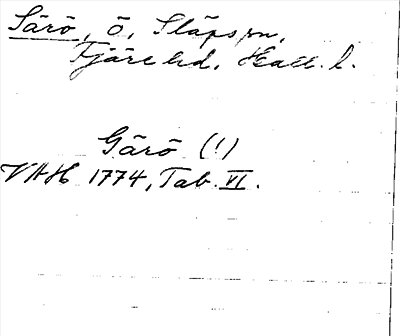 Särö, ö, Släps sn,
Fjäre hd. Hall. l.
Gärö (!)
VAH 1774, Tab. VI.